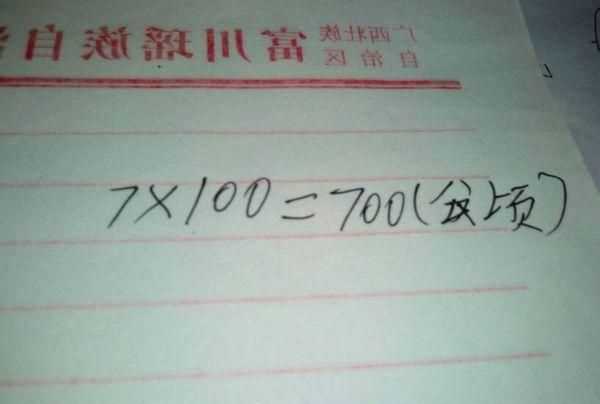 广西壮族
自治区
富川瑶族自
7×100=700(公顷)